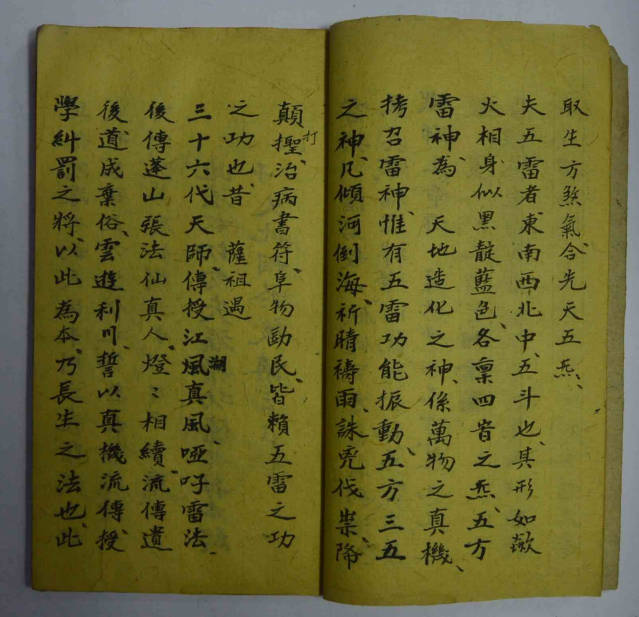 取生方煞氣合先天五炁、
夫五雷者、東南西北中、五斗也、其形如歘
火相、身似黑靛藍色、各稟四旹之炁、五方
雷神、為天地造化之神、係萬物之真機、
拷召雷神、惟有五雷功能振動、五方三五
之神、凡傾河倒海、祈晴禱雨、誅兇伐祟、降
顛打、治病書符、阜物勛民、皆賴五雷之功
之功也、昔薩祖遇
三十六代天師、傳授江湖風真風、啞吽雷法、
後傳蓬山張法仙真人、燈〻相續、流傳遺
後、道成棄俗、雲遊利川、誓以真機流傳授、
學糾罰之將、以此為本、乃長生之法也、此